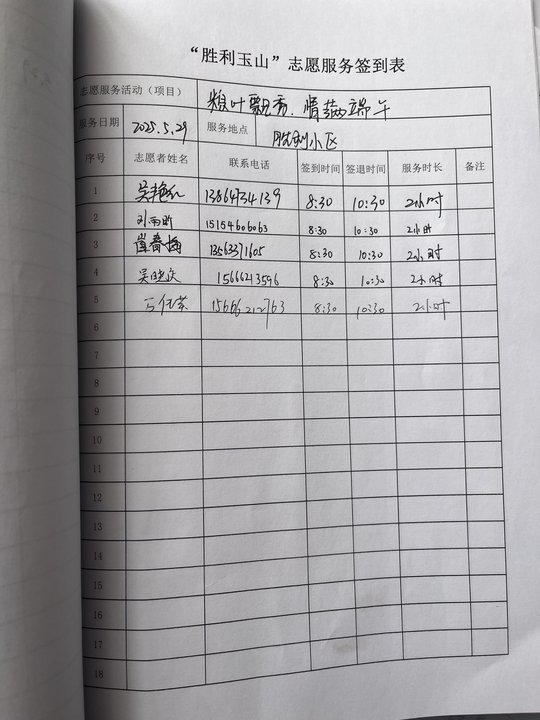 “胜利玉山”志愿服务签到表
志愿服务活动（项目） 粽叶飘香.情满端午
服务日期 2025.5.29 服务地点 胜利小区
序号 志愿者姓名 联系电话 签到时间 签退时间 服务时长 备注
1 吴艳红 13864734139 8:30 10:30 2小时
2 刘雨昕 15154606063 8:30 10:30 2小时
3 崔春梅 13563371605 8:30 10:30 2小时
4 吴晓庆 15666213596 8:30 10:30 2小时
5 15666212763 8:30 10:30 2小时
6
7
8
9
10
11
12
13
14
15
16
17
18